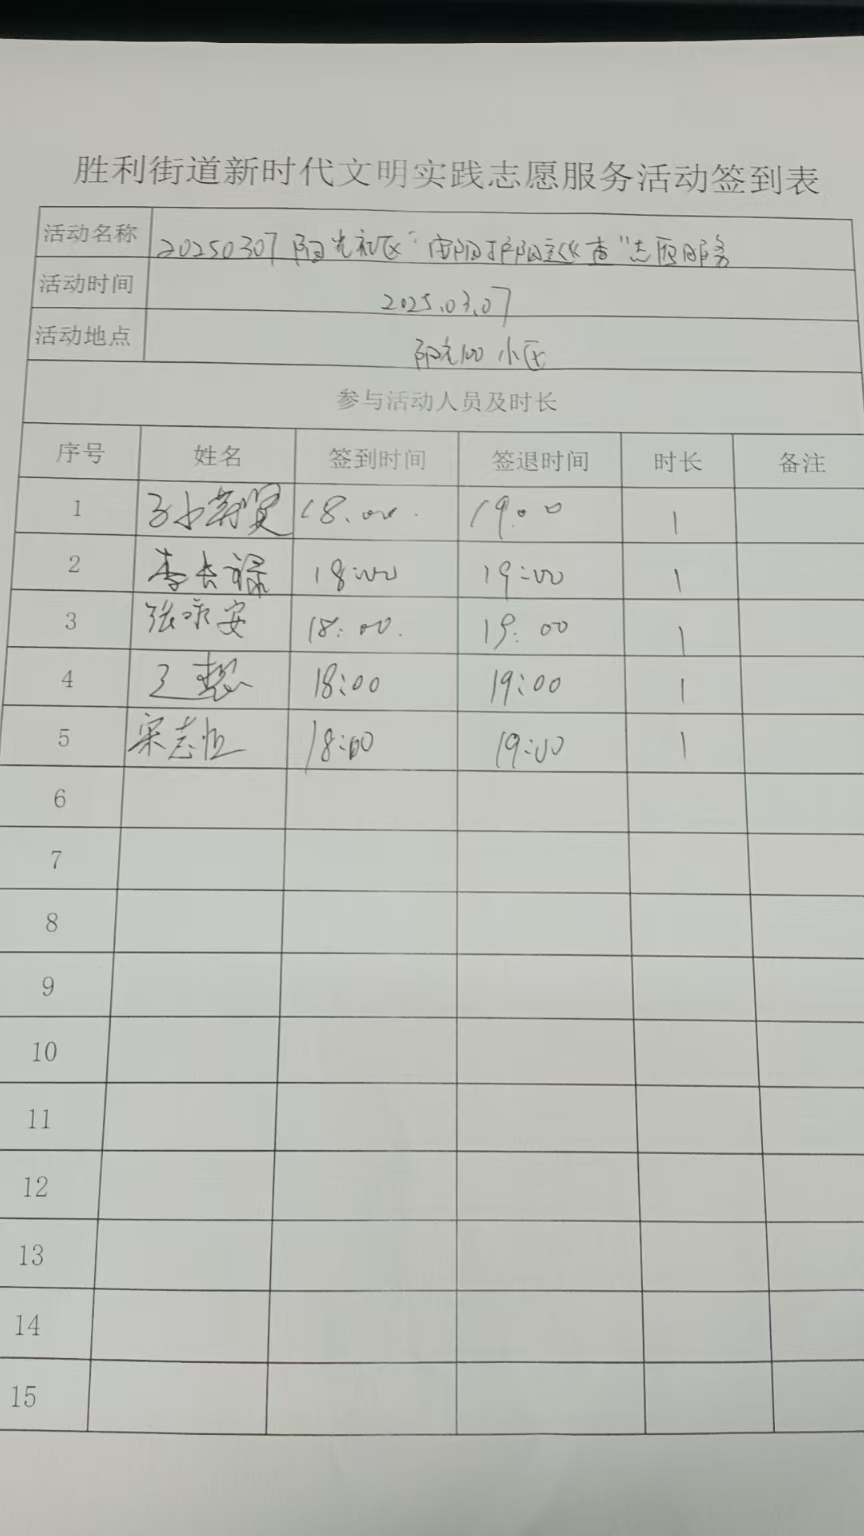 胜利街道新时代文明实践志愿服务活动签到表
活动名称 20250307 阳光社区"志愿服务
活动时间 2025.03.07
活动地点 阳光100 小区
参与活动人员及时长
序号 姓名 签到时间 签退时间 时长 备注
1 18:00 19:00 1
2 李长禄 18:00 19:00 1
3 张咏安 18:00 19:00 1
4 18:00 19:00 1
5 宋志恒 18:00 19:00 1
6
7
8
9
10
11
12
13
14
15